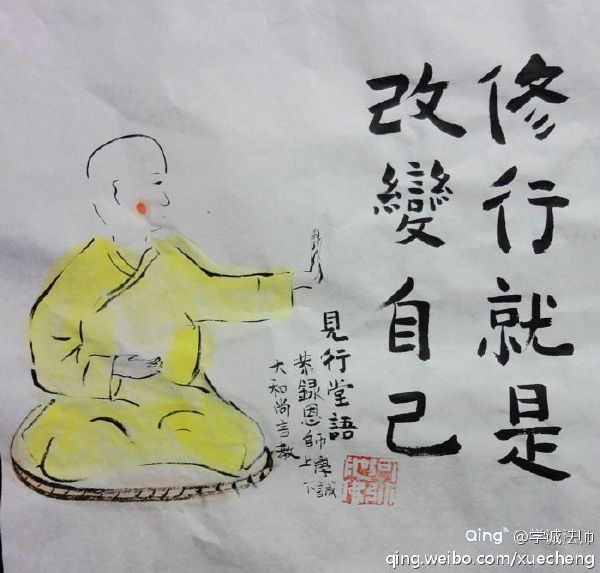 修行就是
改變自己
見行堂語
恭錄恩師上學下誠
大和尚言教
Qing @学诚法师
qing.weibo.com/xuecheng